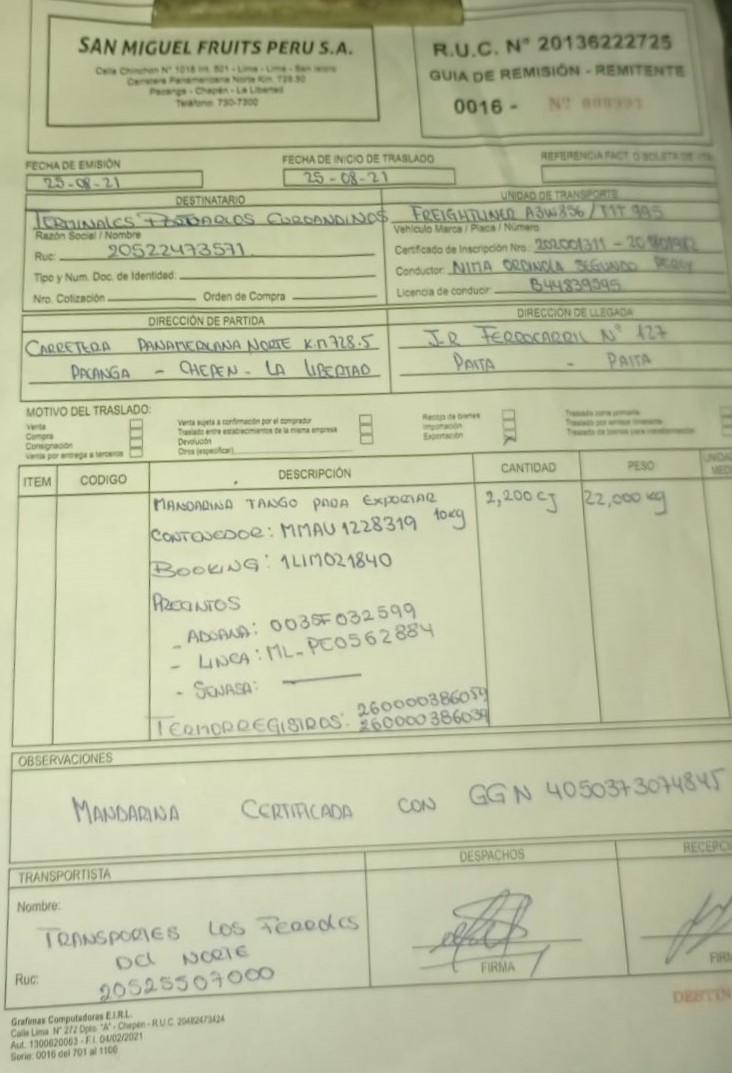 SAN MIGUEL FRUITS PERU S.A.
Calle Chinchon N° 1018 Int. 501 - Lima - Lima - San Isidro
Carretera Panamericana Norte Km. 728.50
Pacanga - Chepén - La Libertad
Teléfono: 730-7300
R.U.C. N° 20136222725
GUIA DE REMISIÓN - REMITENTE
0016 - Nº
FECHA DE EMISIÓN
25-08-21
FECHA DE INICIO DE TRASLADO
25-08-21
REFERENCIA FACT. O BOLETA DE
DESTINATARIO
TERMINALES PORTUARIOS EUROANDINOS
Razón Social / Nombre
Ruc: 20522473571
Tipo y Num. Doc. de Identidad:
Nro. Cotización Orden de Compra
UNIDAD DE TRANSPORTE
FREIGHTLINER A3W856 / T1T 995
Vehículo Marca / Placa / Número
Certificado de Inscripción Nro.: 202001311 -
Conductor: NIMA ORDINOLA SEGUNDO PERCY
Licencia de conducir: B44839595
DIRECCIÓN DE PARTIDA
CARRETERA PANAMERICANA NORTE KM 728.5
PACANGA - CHEPEN - LA LIBERTAD
DIRECCIÓN DE LLEGADA
J.R FERROCARRIL N° 127
PAITA - PAITA
MOTIVO DEL TRASLADO:
Venta
Compra
Consignación
Venta por entrega a terceros
Venta sujeta a confirmación por el comprador
Traslado entre establecimientos de la misma empresa
Devolución
Otros (especificar)
Recojo de bienes
Importación
Exportación X
Traslado zona primaria
Traslado por emisor itinerante
Traslado de bienes para transformación
ITEM CODIGO DESCRIPCIÓN CANTIDAD PESO
MANDARINA TANGO PARA EXPORTAR 2,200 CJ 22,000 kg
10kg
CONTENEDOR: MMAU 1228319
BOOKING: 1LIM021840
PRECINTOS
- ADUANA: 003SF032599
- LINEA: ML-PE0562884
- SENASA: ———
260000386059
TERMORREGISTROS: 260000386039
OBSERVACIONES
MANDARINA CERTIFICADA CON GGN 4050373074845
TRANSPORTISTA
Nombre:
TRANSPORTES LOS FERROLES
DEL NORTE
Ruc: 20525507000
DESPACHOS
FIRMA
RECEPCI
FIRM
DESTIN
Grafimas Computadoras E.I.R.L.
Calle Lima N° 272 Dpto. "A" - Chepén - R.U.C. 20482473424
Aut. 1300620063 - F.I. 04/02/2021
Serie: 0016 del 701 al 1100